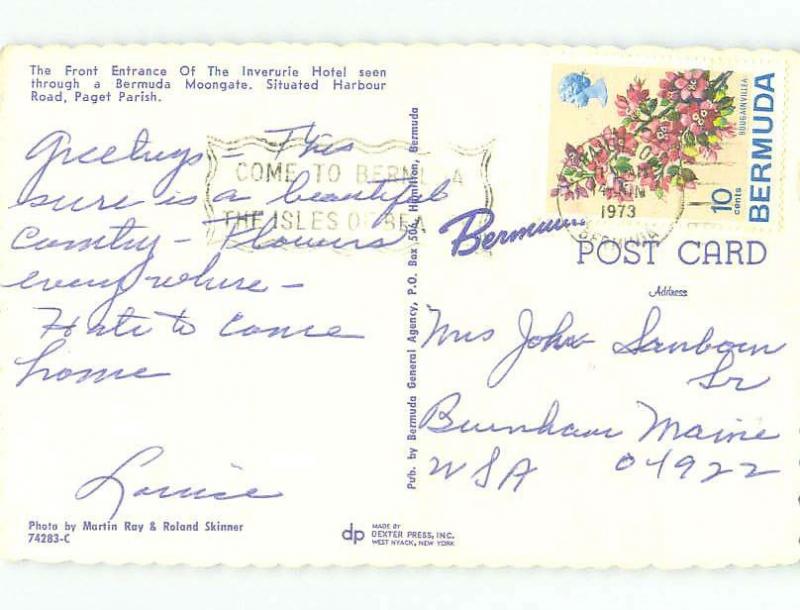 The Front Entrance Of The Inverurie Hotel seen
through a Bermuda Moongate. Situated Harbour
Road, Paget Parish.
Greetings - This
sure is a beautiful
Country - Flowers
everywhere -
Hate to come
home
Louise
Photo by Martin Ray & Roland Skinner
74283-C
COME TO BERMUDA
THE ISLES OF
Pub. by Bermuda General Agency, P.O. Box 504, Hamilton, Bermuda
dp MADE BY
DEXTER PRESS, INC.
WEST NYACK, NEW YORK
BOUGAINVILLEA
BERMUDA
10 cents
1973
BERMUDA
Bermuda
POST CARD
Address
Mrs John Sanborn
Sr
Burnham Maine
USA 04922